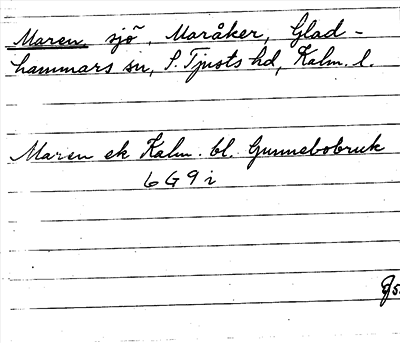 Maren sjö, Maråker, Glad-
hammars sn, S. Tjusts hd, Kalm. l.
Maren ek Kalm. bl. Gunnebobruk
6 G 9 i